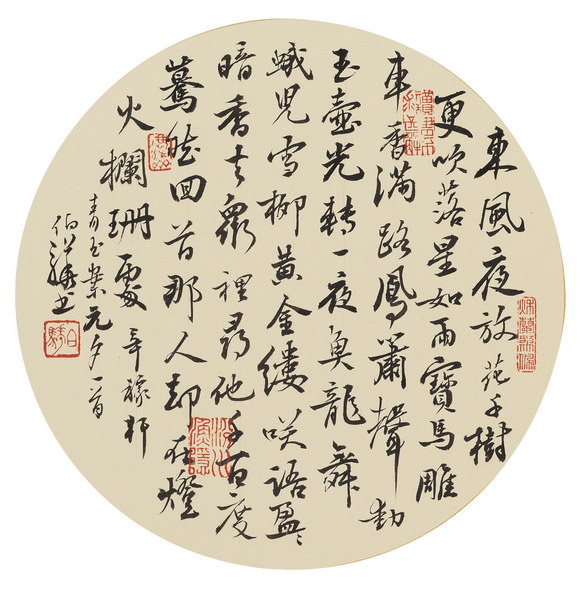 東風夜放花千樹
更吹落星如雨寶馬雕
車香滿路鳳簫聲動
玉壺光轉一夜魚龍舞
蛾兒雪柳黃金縷咲語盈〻
暗香去衆裡尋他千百度
驀然回首那人却在燈
火欄珊處辛稼軒
青玉案元夕一首
伯書